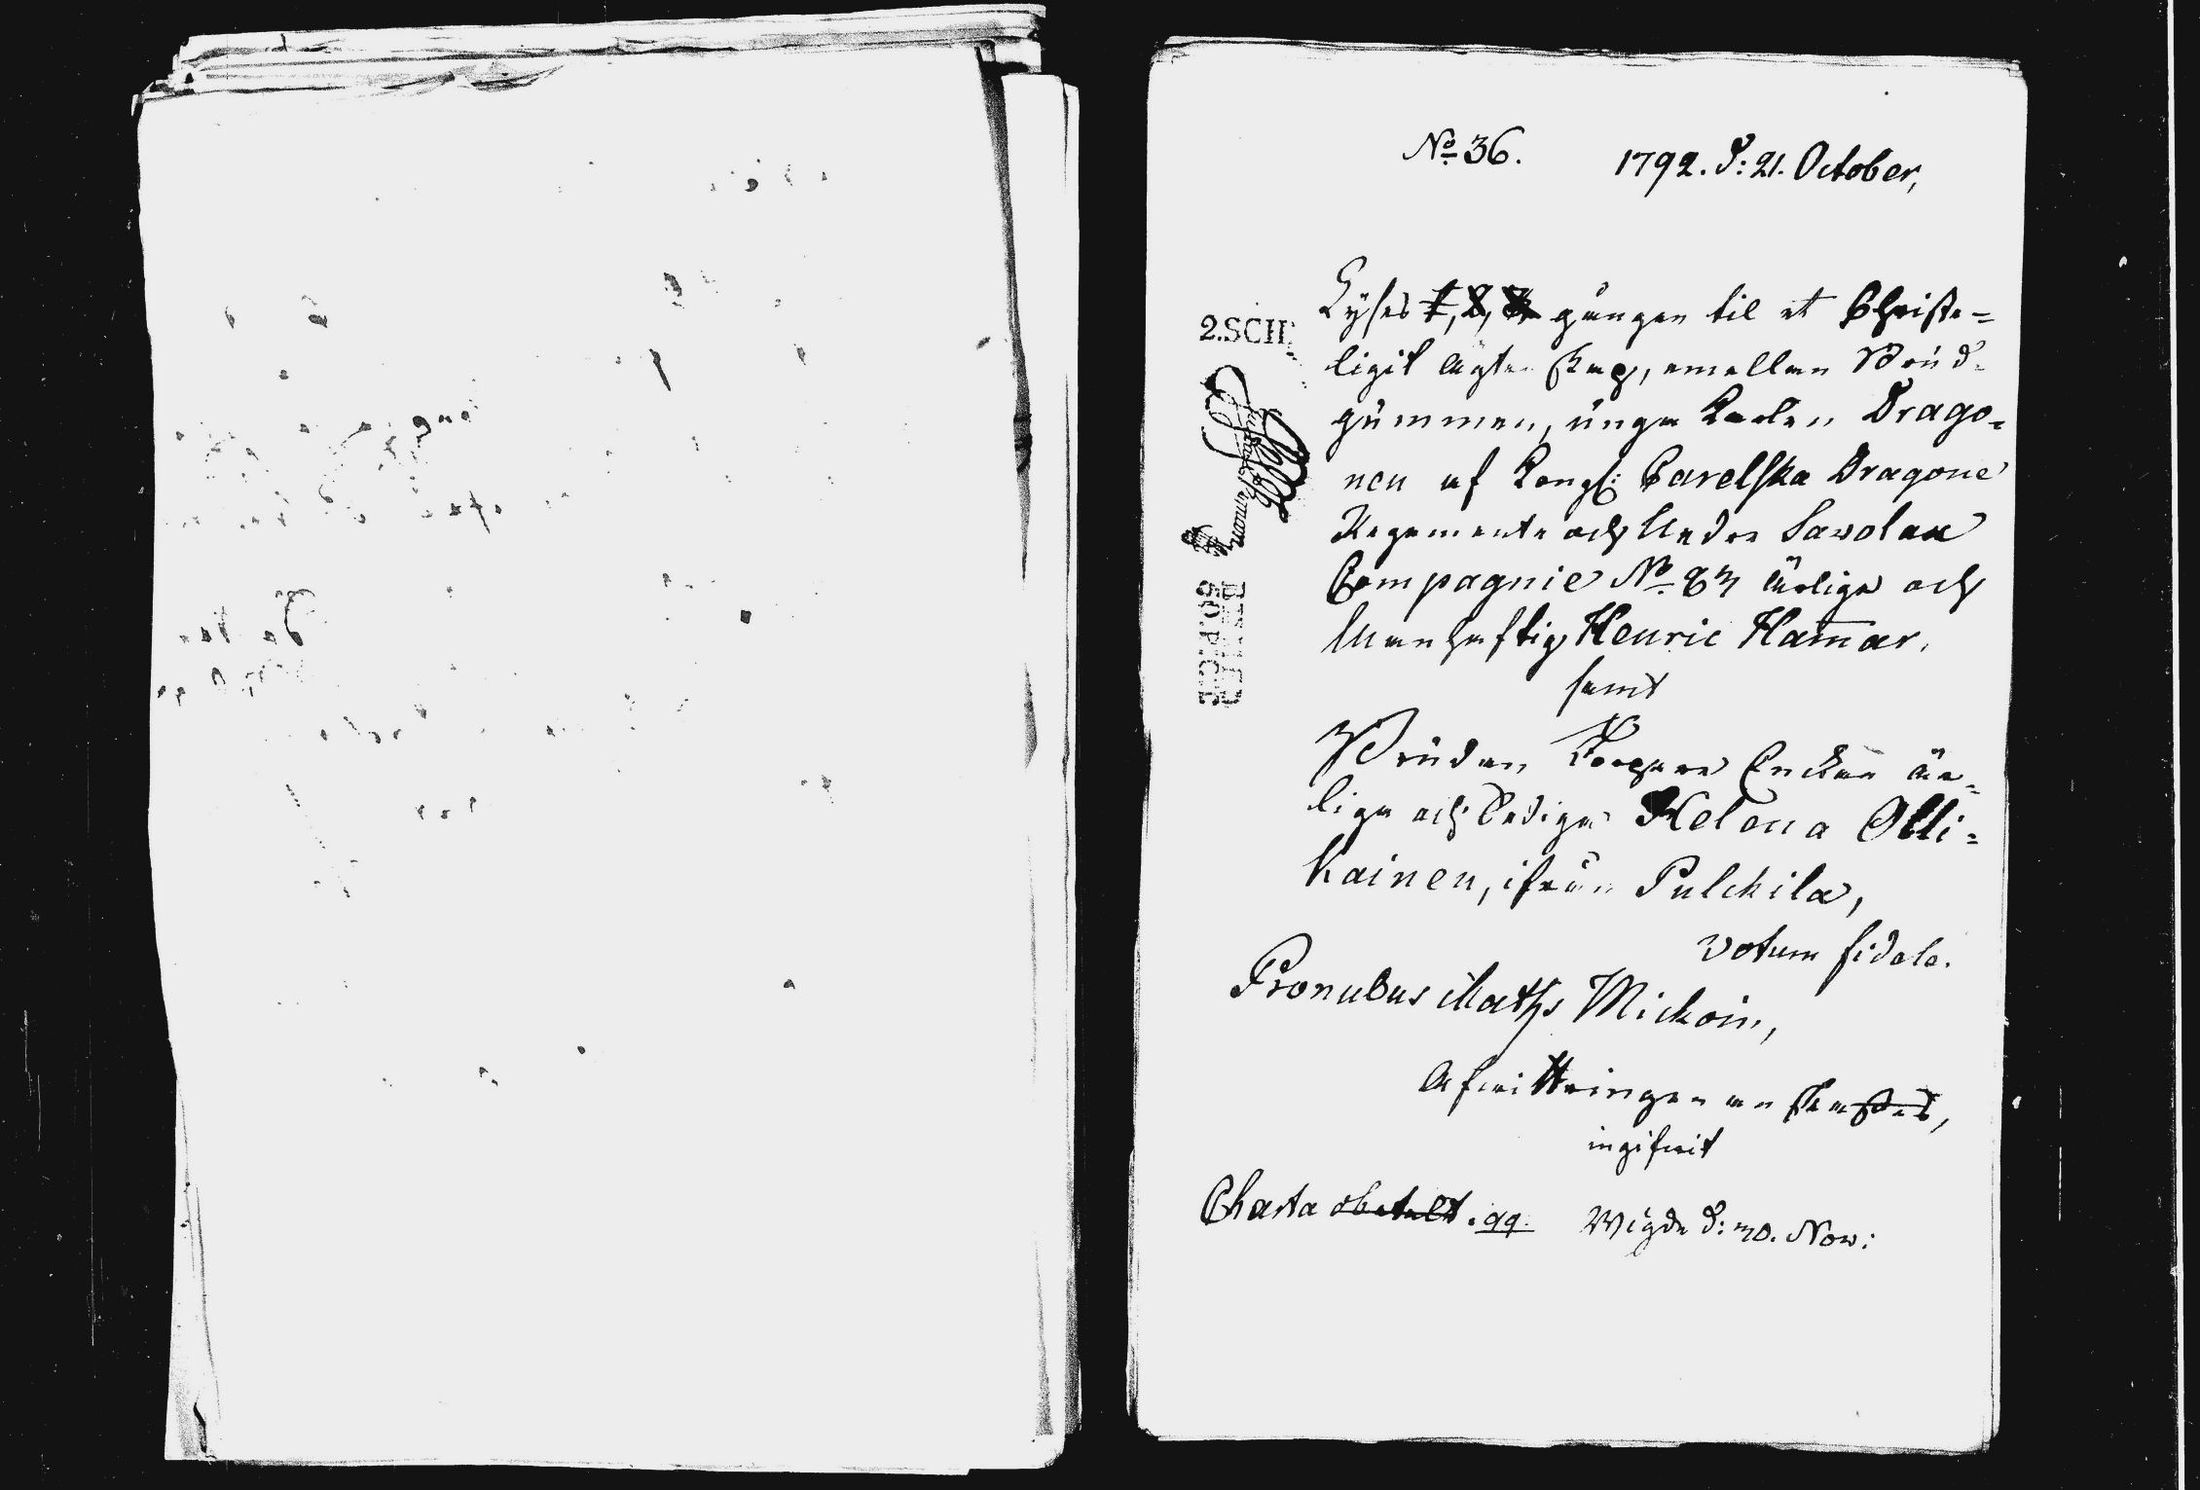 No 36. 1792. d: 21. October,
Lyses 1, 2, 3, gången til et Christe=
ligit ägtenskap, emellan Brud=
gummen, unga Karlen Drago=
nen af Kongl: Carelska Dragone
Regemente och Under Savolax
Compagnie No 83 ärlige och
Manhaftig Henric Hamar,
samt
Bruden Enckan är=
liga och Gudiga Helena Olli=
kainen, ifrån Pulckila,
votum fidele.
Pronubus Maths Mickoin,
Afwittringen
ingifwit
Charta obetalt. Wigde d: 30. Nov:
2.SCH